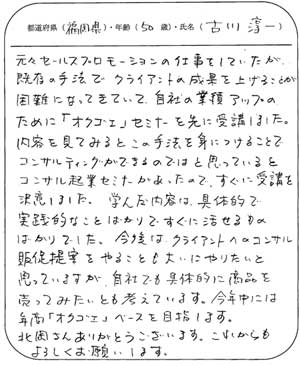 都道府県(福岡県)・年齢(50歳)・氏名(古川 淳一)
元々セールスプロモーションの仕事をしていたが、
既存の手法でクライアントの成果を上げることが
困難になってきていて、自社の業績アップの
ために「オクゴエ」セミナーを先に受講しました。
内容を見てみるとこの手法を身につけることで
コンサルティングができるのではと思っていると
コンサル起業セミナーがあったので、すぐに受講を
決意しました。学んだ内容は、具体的で
実践的なことばかりですぐに活せるもの
ばかりでした。今後は、クライアントへのコンサル
販促提案をやることも大いにやりたいと
思っていますが、自社でも具体的に商品を
売ってみたいとも考えています。今年中には
年商「オクゴエ」ペースを目指します。
北岡さんありがとうございます。これからも
よろしくお願いします。